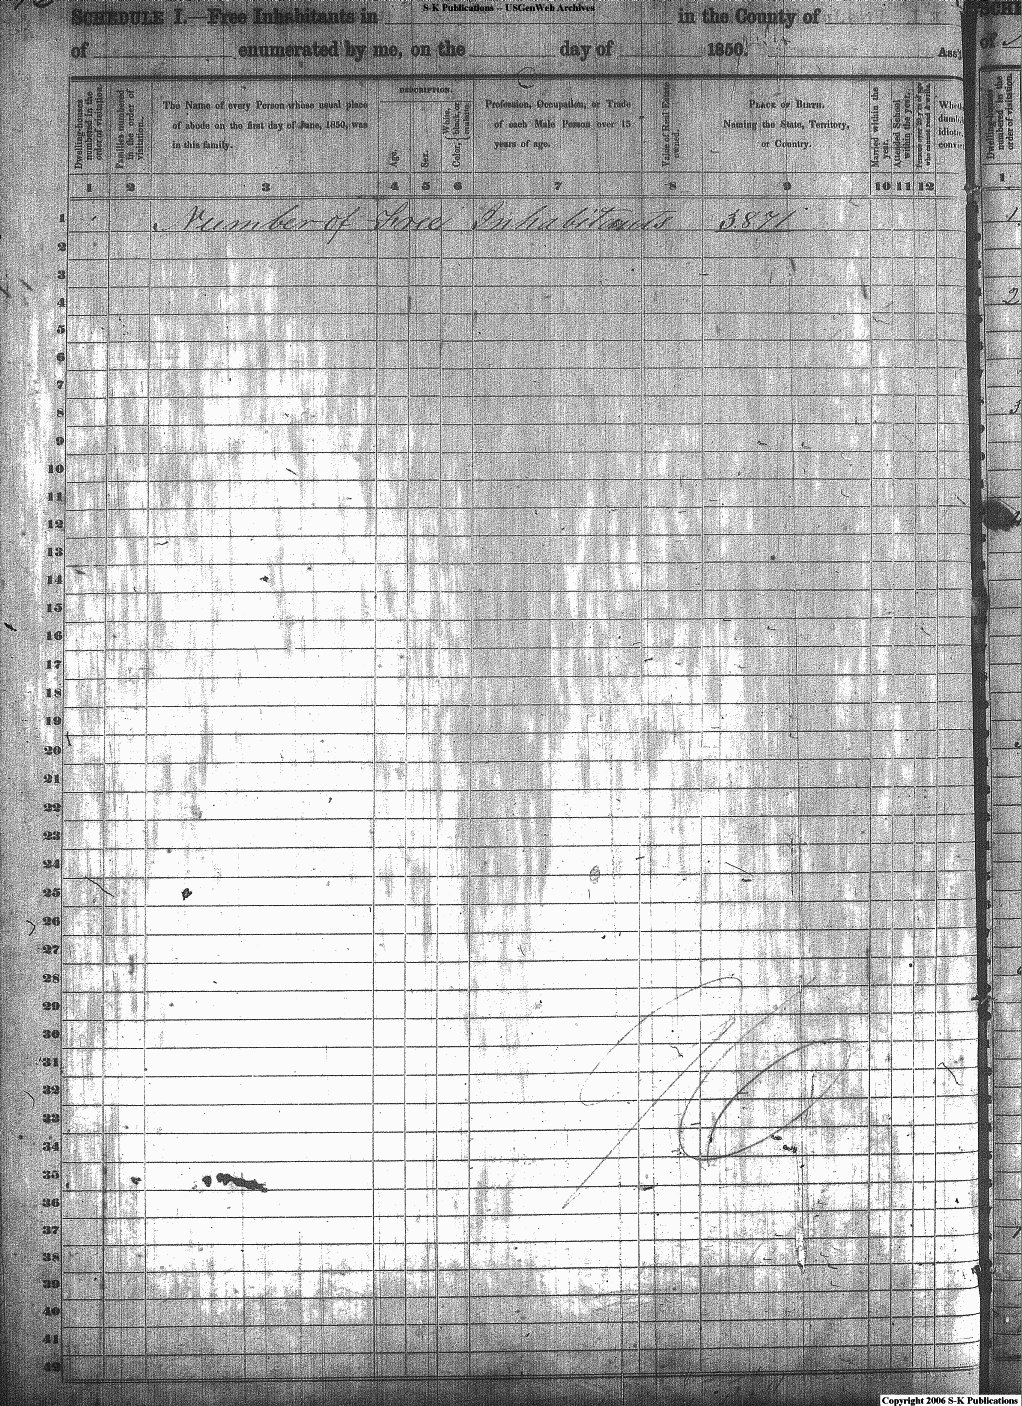 S-K Publications -- USGenWeb Archives
SCHEDULE I.—Free Inhabitants in in the County of
of enumerated by me, on the day of 1850.
Dwelling-houses numbered in the order of visitation.
Families numbered in the order of visitation.
The Name of every Person whose usual place of abode on the first day of June, 1850, was in this family.
DESCRIPTION.
Age.
Sex.
Color, White, black, or mulatto.
Profession, Occupation, or Trade of each Male Person over 15 years of age.
Value of Real Estate owned.
PLACE OF BIRTH.
Naming the State, Territory, or Country.
Married within the year.
Attended School within the year.
1 2 3 4 5 6 7 8 9 10 11 12
1 Number of Free Inhabitants 3871
2
3
4
5
6
7
8
9
10
11
12
13
14
15
16
17
18
19
20
21
22
23
24
25
26
27
28
29
30
31
32
33
34
35
36
37
38
39
40
41
42
Copyright 2006 S-K Publications